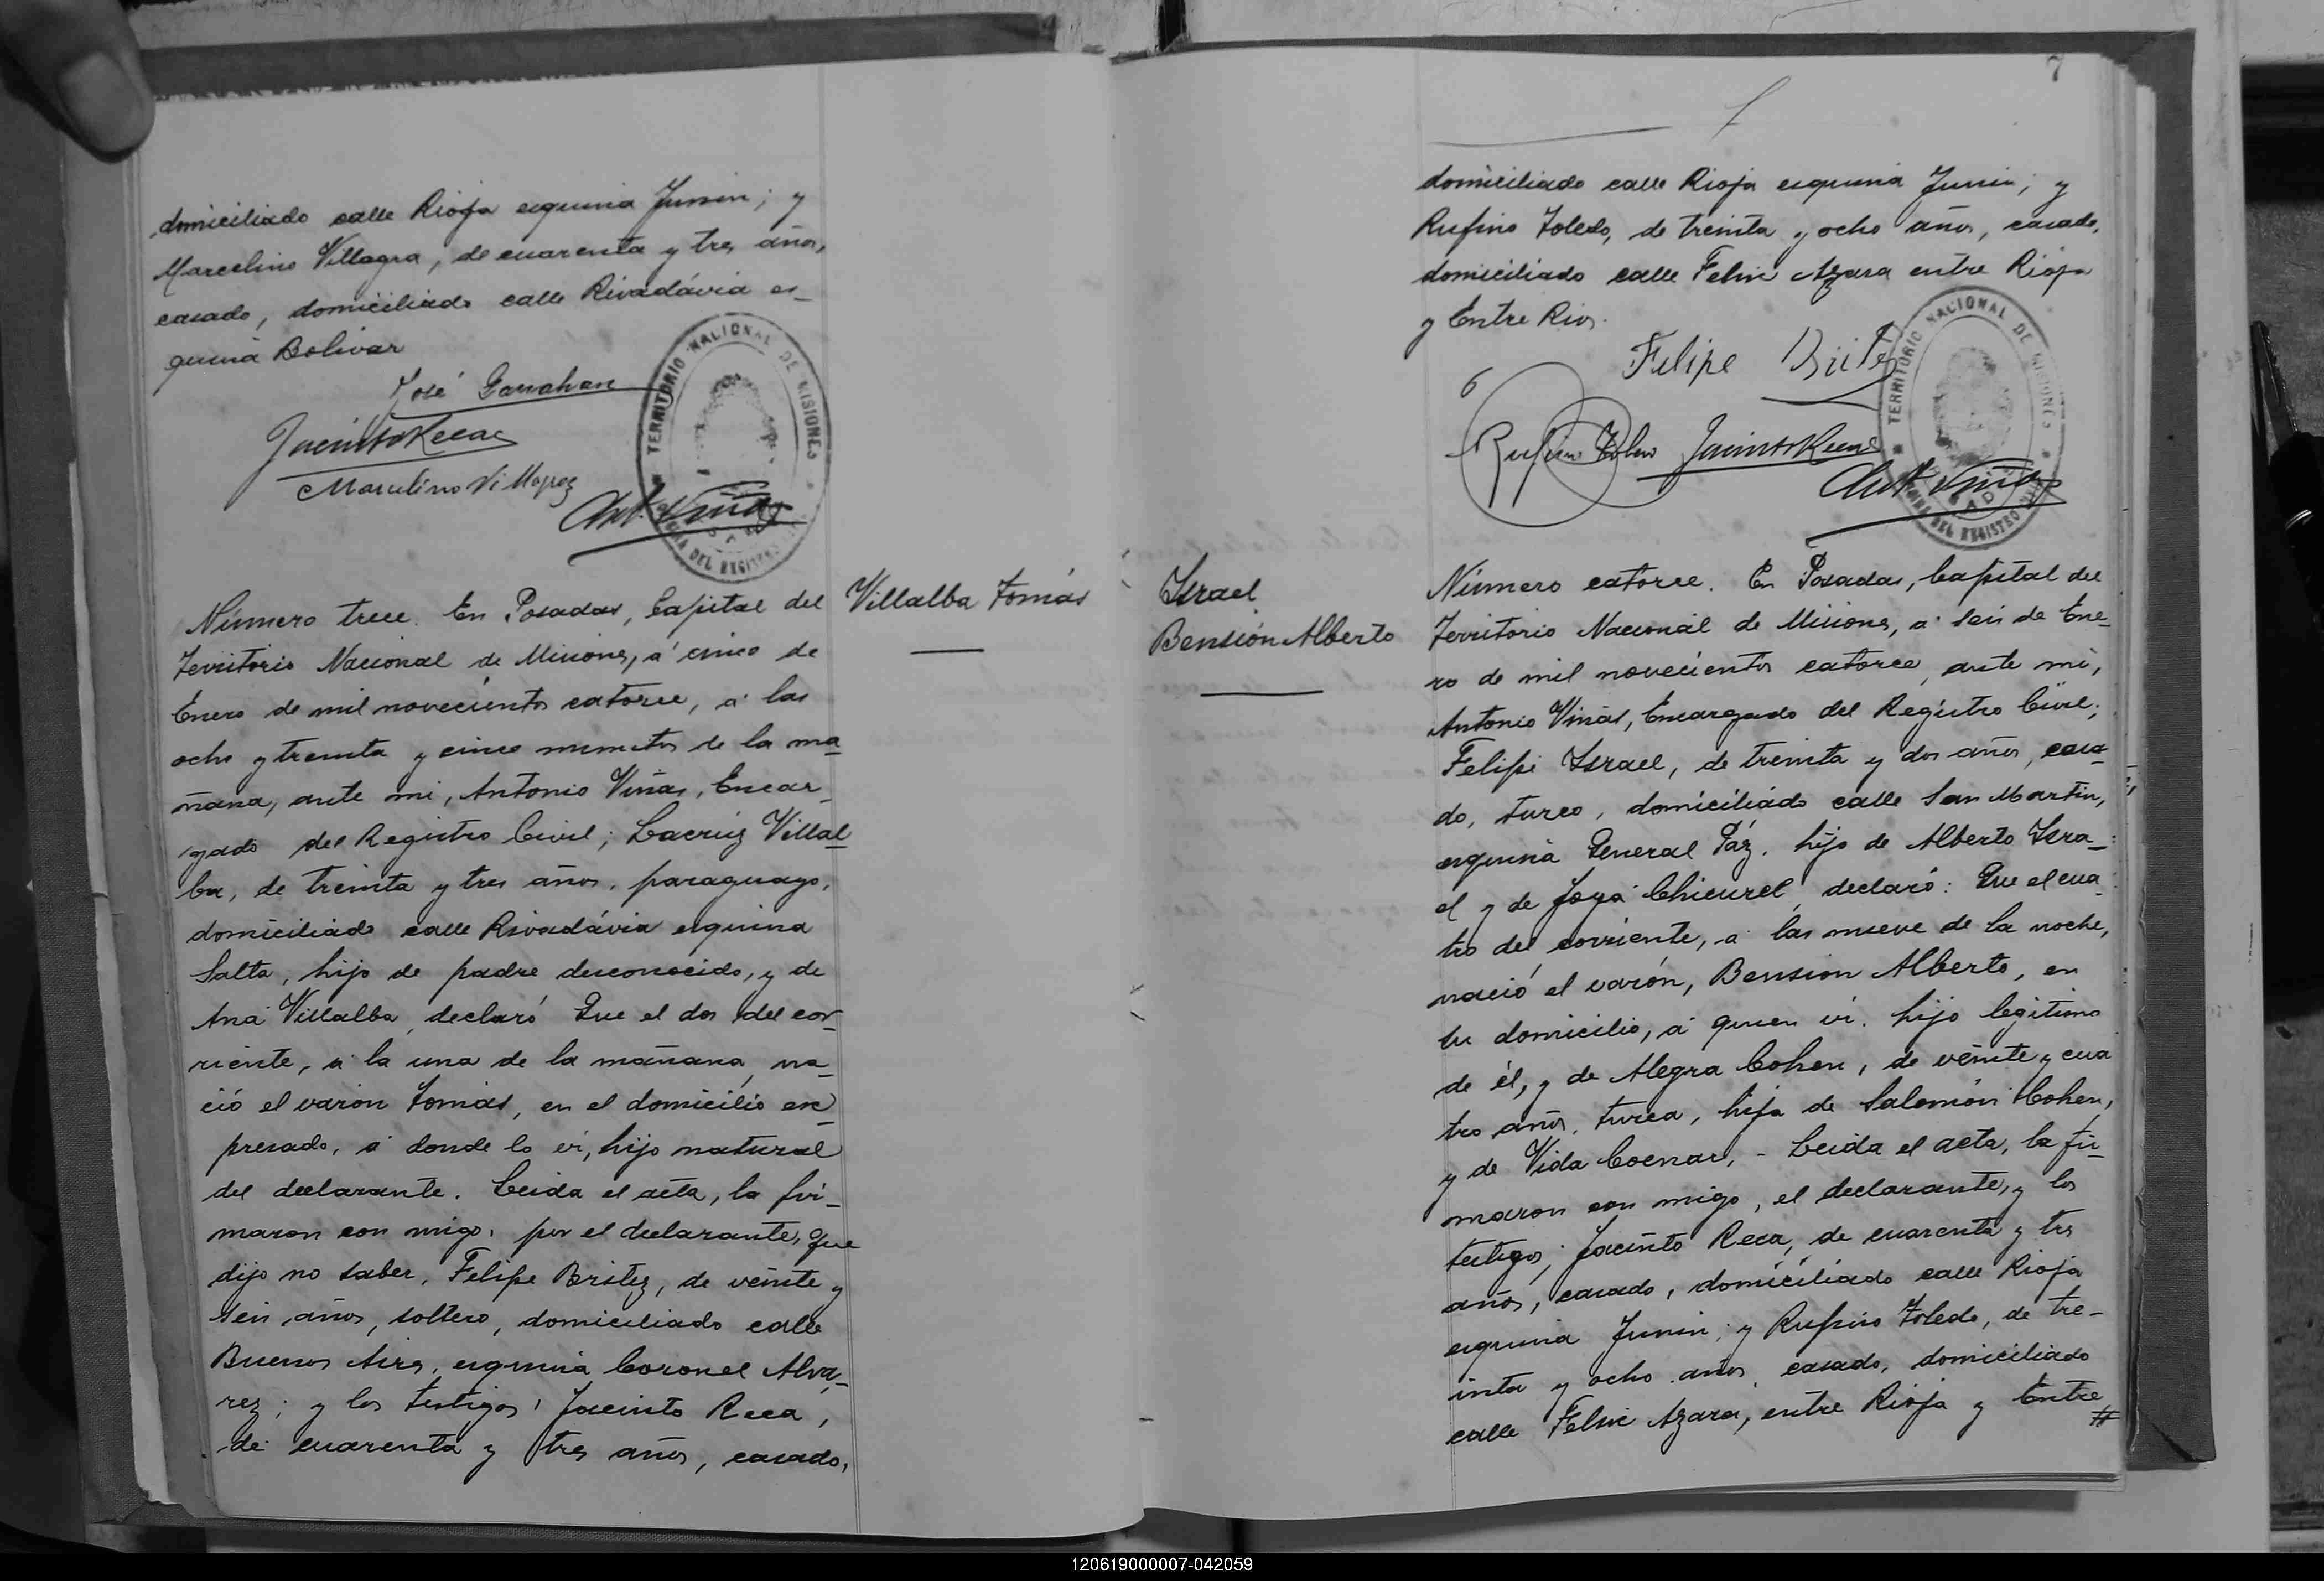 domiciliado calle Rioja esquina Junin; y
Marcelino Villagra, de cuarenta y tres años,
casado, domiciliado calle Rivadávia es-
quina Bolivar
José
Jacinto Reca
Marcelino Villagra
Ant. Viñas
TERRITORIO NACIONAL DE MISIONES
DEL REGISTRO
Número trece. En Posadas, Capital del
Territorio Nacional de Misiones, á cinco de
Enero de mil novecientos catorce, á las
ocho y treinta y cinco minutos de la ma-
ñana, ante mi, Antonio Viñas, Encar-
gado del Registro Civil; Lacruz Villal-
ba, de treinta y tres años, paraguayo,
domiciliado calle Rivadávia esquina
Salta, hijo de padre desconocido, y de
Ana Villalba, declaró Que el dos del cor-
riente, á la una de la mañana, na-
ció el varon Tomás, en el domicilio ex-
presado, á donde lo vi, hijo natural
del declarante. Leida el acta, la fir-
maron con migo, por el declarante, que
dijo no saber, Felipe Britez, de veinte y
seis años, soltero, domiciliado calle
Buenos Aires, esquina Coronel Alva-
rez; y los testigos: Jacinto Reca,
de cuarenta y tres años, casado,
Villalba Tomás
7
domiciliado calle Rioja esquina Junin; y
Rufino Toledo, de treinta y ocho años, casado,
domiciliado calle Felix Azara entre Rioja
y Entre Rios.
Felipe Britez
Rufino Toledo Jacinto Reca
Ant. Viñas
TERRITORIO NACIONAL DE MISIONES
DEL REGISTRO
Israel
Bensión Alberto
Número catorce. En Posadas, Capital del
Territorio Nacional de Misiones, á seis de Ene-
ro de mil novecientos catorce, ante mi,
Antonio Viñas, Encargado del Registro Civil;
Felipe Israel, de treinta y dos años, casa-
do, turco, domiciliado calle San Martin,
esquina General Páz, hijo de Alberto Isra-
el y de Joya Chicurel, declaró: Que el cua-
tro del corriente, á las nueve de la noche,
nació el varón, Bension Alberto, en
su domicilio, á quien vi. hijo legitimo
de él, y de Alegra Cohen, de veinte y cua
tro años, turca, hija de Salomón Cohen,
y de Vida Coenar, - Leida el acta, la fir-
maron con migo, el declarante, y los
testigos; Jacinto Reca, de cuarenta y tres
años, casado, domiciliado calle Rioja
esquina Junin; y Rufino Toledo, de tre-
inta y ocho años, casado, domiciliado
calle Felix Azara, entre Rioja y Entre
#
120619000007-042059